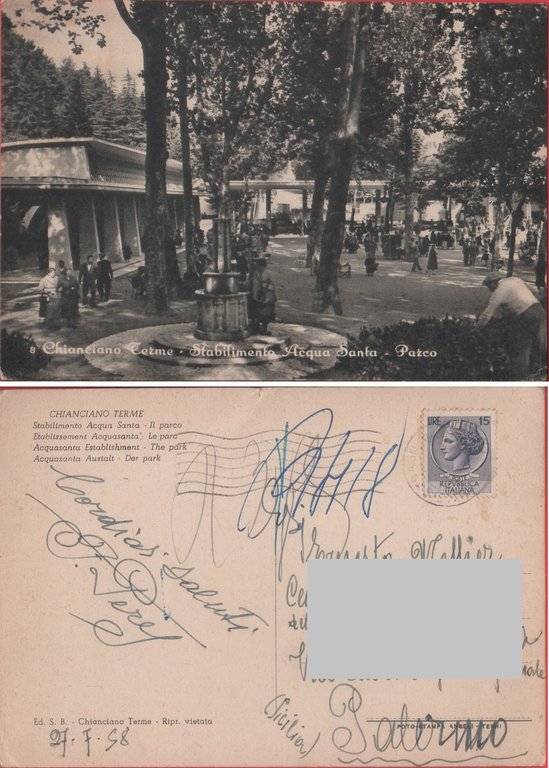 8 Chianciano Terme - Stabilimento Acqua Santa - Parco
CHIANCIANO TERME
Stabilimento Acqua Santa - Il parco
Etablissement Acquasanta - Le parc
Acquasanta Establishment - The park
Acquasanta Austalt - Der park
LIRE 15
POSTE
REPUBBLICA
ITALIANA
Cordiali saluti
Ernesto
Palermo
(Sicilia)
Ed. S. B. - Chianciano Terme - Ripr. vietata
FOTO-STAMPA ANGELI - TERNI
27.7.58